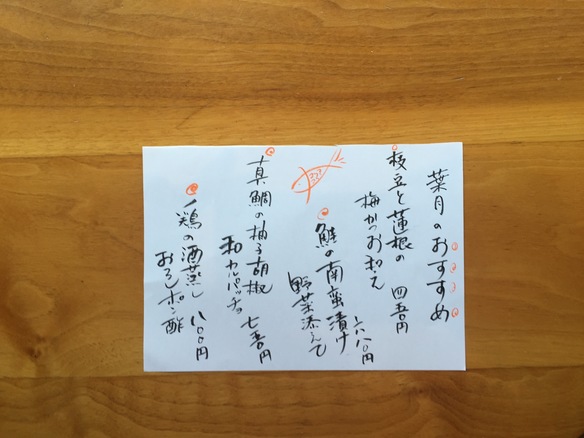 葉月のおすすめ
枝豆と蓮根の
梅かつお和え 四五〇円
鮭の南蛮漬け
野菜添えて 六八〇円
真鯛の柚子胡椒
和カルパッチョ 七五〇円
鶏の酒蒸し 八〇〇円
おろしポン酢